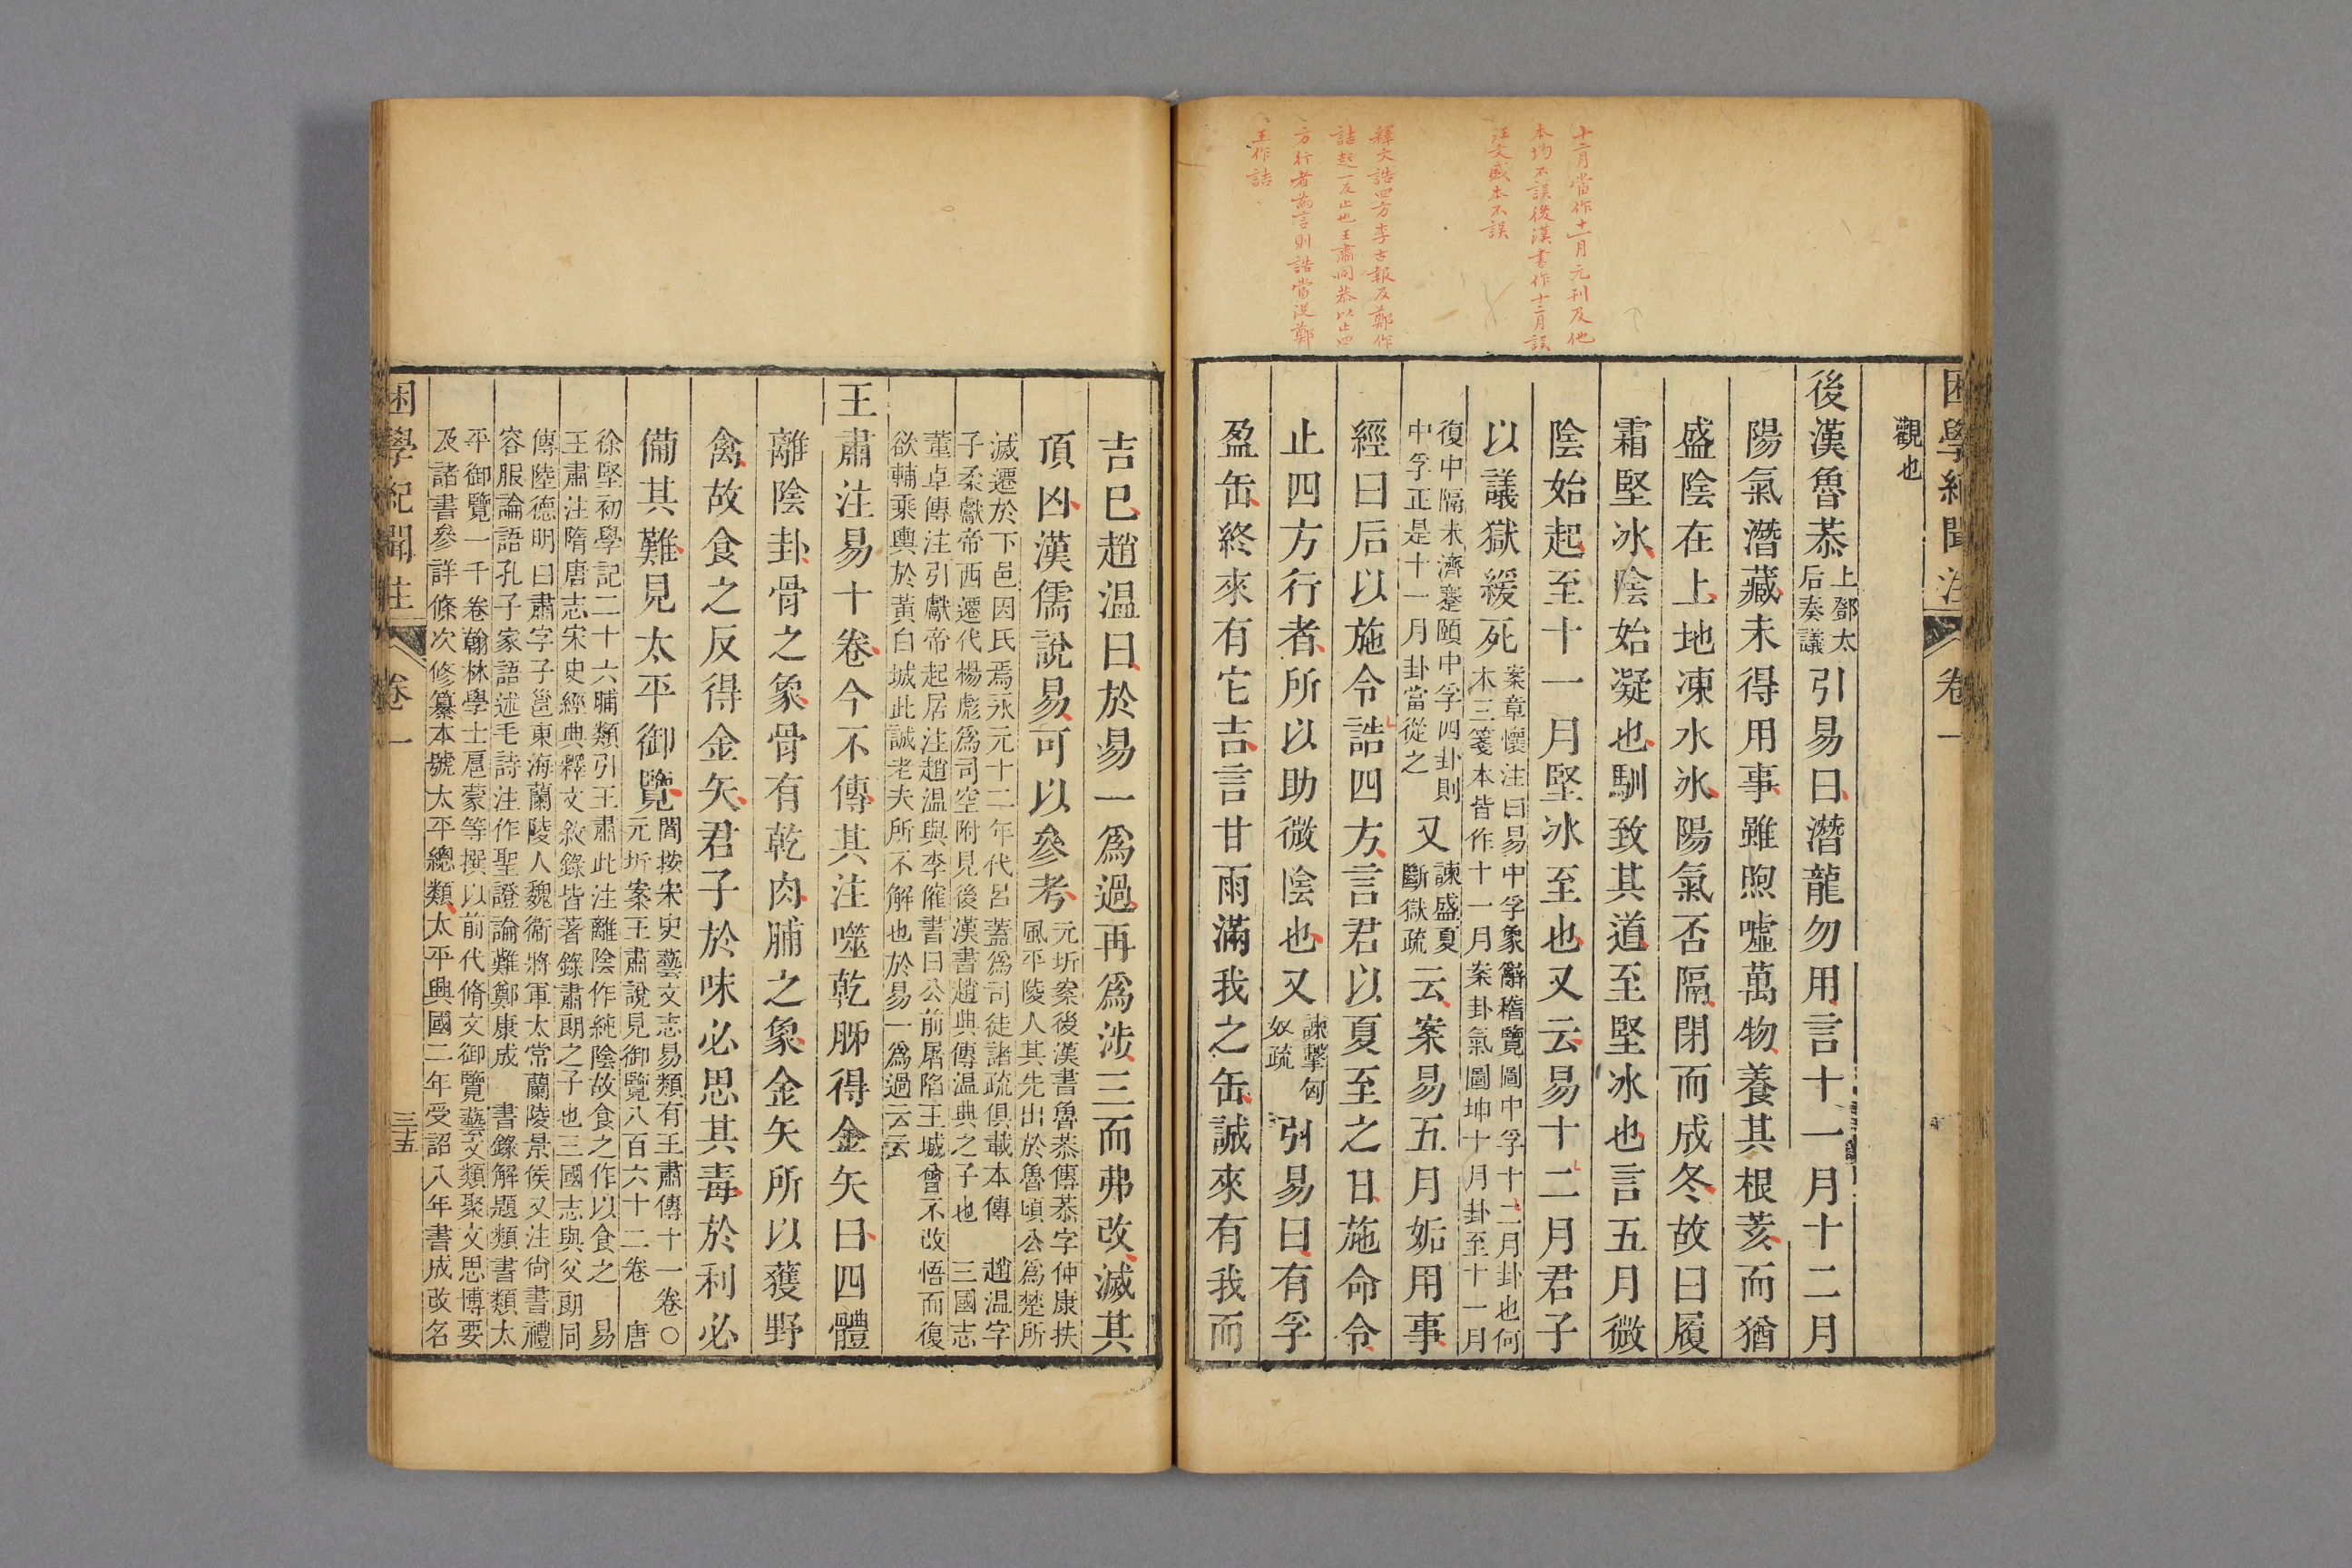 十二月當作十一月元刊及他
本均不誤後漢書作十二月誤
汪文盛本不誤
釋文誥四方李古報反鄭作
詰起一反止也王肅同恭以止四
方行者爲言則誥當從鄭
王作詰
困學紀聞注 卷一
觀也
後漢魯恭上鄧太后奏議引易曰潛龍勿用言十一月十二月
陽氣潛藏未得用事雖煦噓萬物養其根荄而猶
盛陰在上地凍水冰陽氣否隔閉而成冬故曰履
霜堅冰陰始凝也馴致其道至堅冰也言五月微
陰始起至十一月堅冰至也又云易十二月君子
以議獄緩死案章懷注曰易中孚象辭稽覽圖中孚十二月卦也何
本三箋本皆作十一月案卦氣圖坤十月卦至十一月
復中隔未濟蹇頤中孚四卦則
中孚正是十一月卦當從之
又諫盛夏斷獄疏云案易五月姤用事
經曰后以施令誥四方言君以夏至之日施命令
止四方行者所以助微陰也又諫擊匈奴疏引易曰有孚
盈缶終來有它吉言甘雨滿我之缶誠來有我而
吉巳趙温曰於易一爲過再爲涉三而弗改滅其
頂凶漢儒說易可以參考元圻案後漢書魯恭傳恭字仲康扶
風平陵人其先出於魯頃公爲楚所
滅遷於下邑因氏焉永元十二年代呂蓋爲司徒諸疏俱載本傳 趙温字
子柔獻帝西遷代楊彪爲司空附見後漢書趙典傳温典之子也 三國志
董卓傳注引獻帝起居注趙温與李傕書曰公前屠陷王城曾不改悟而復
欲輔乘輿於黃白城此誠老夫所不解也於易一爲過云云
王肅注易十卷今不傳其注噬乾胏得金矢曰四體
離陰卦骨之象骨有乾肉脯之象金矢所以獲野
禽故食之反得金矢君子於味必思其毒於利必
備其難見太平御覽閻按宋史藝文志易類有王肅傳十一卷○
元圻案王肅說見御覽八百六十二卷 唐
徐堅初學記二十六脯類引王肅此注離陰作純陰故食之作以食之 易
王肅注隋唐志宋史經典釋文敘錄皆著錄肅朗之子也三國志與父朗同
傳陸德明曰肅字子邕東海蘭陵人魏衞將軍太常蘭陵景侯又注尙書禮
容服論語孔子家語述毛詩注作聖證論難鄭康成 書錄解題類書類太
平御覽一千卷翰林學士扈蒙等撰以前代脩文御覽藝文類聚文思博要
及諸書參詳條次修纂本號太平總類太平興國二年受詔八年書成改名
困學紀聞注 卷一 三五